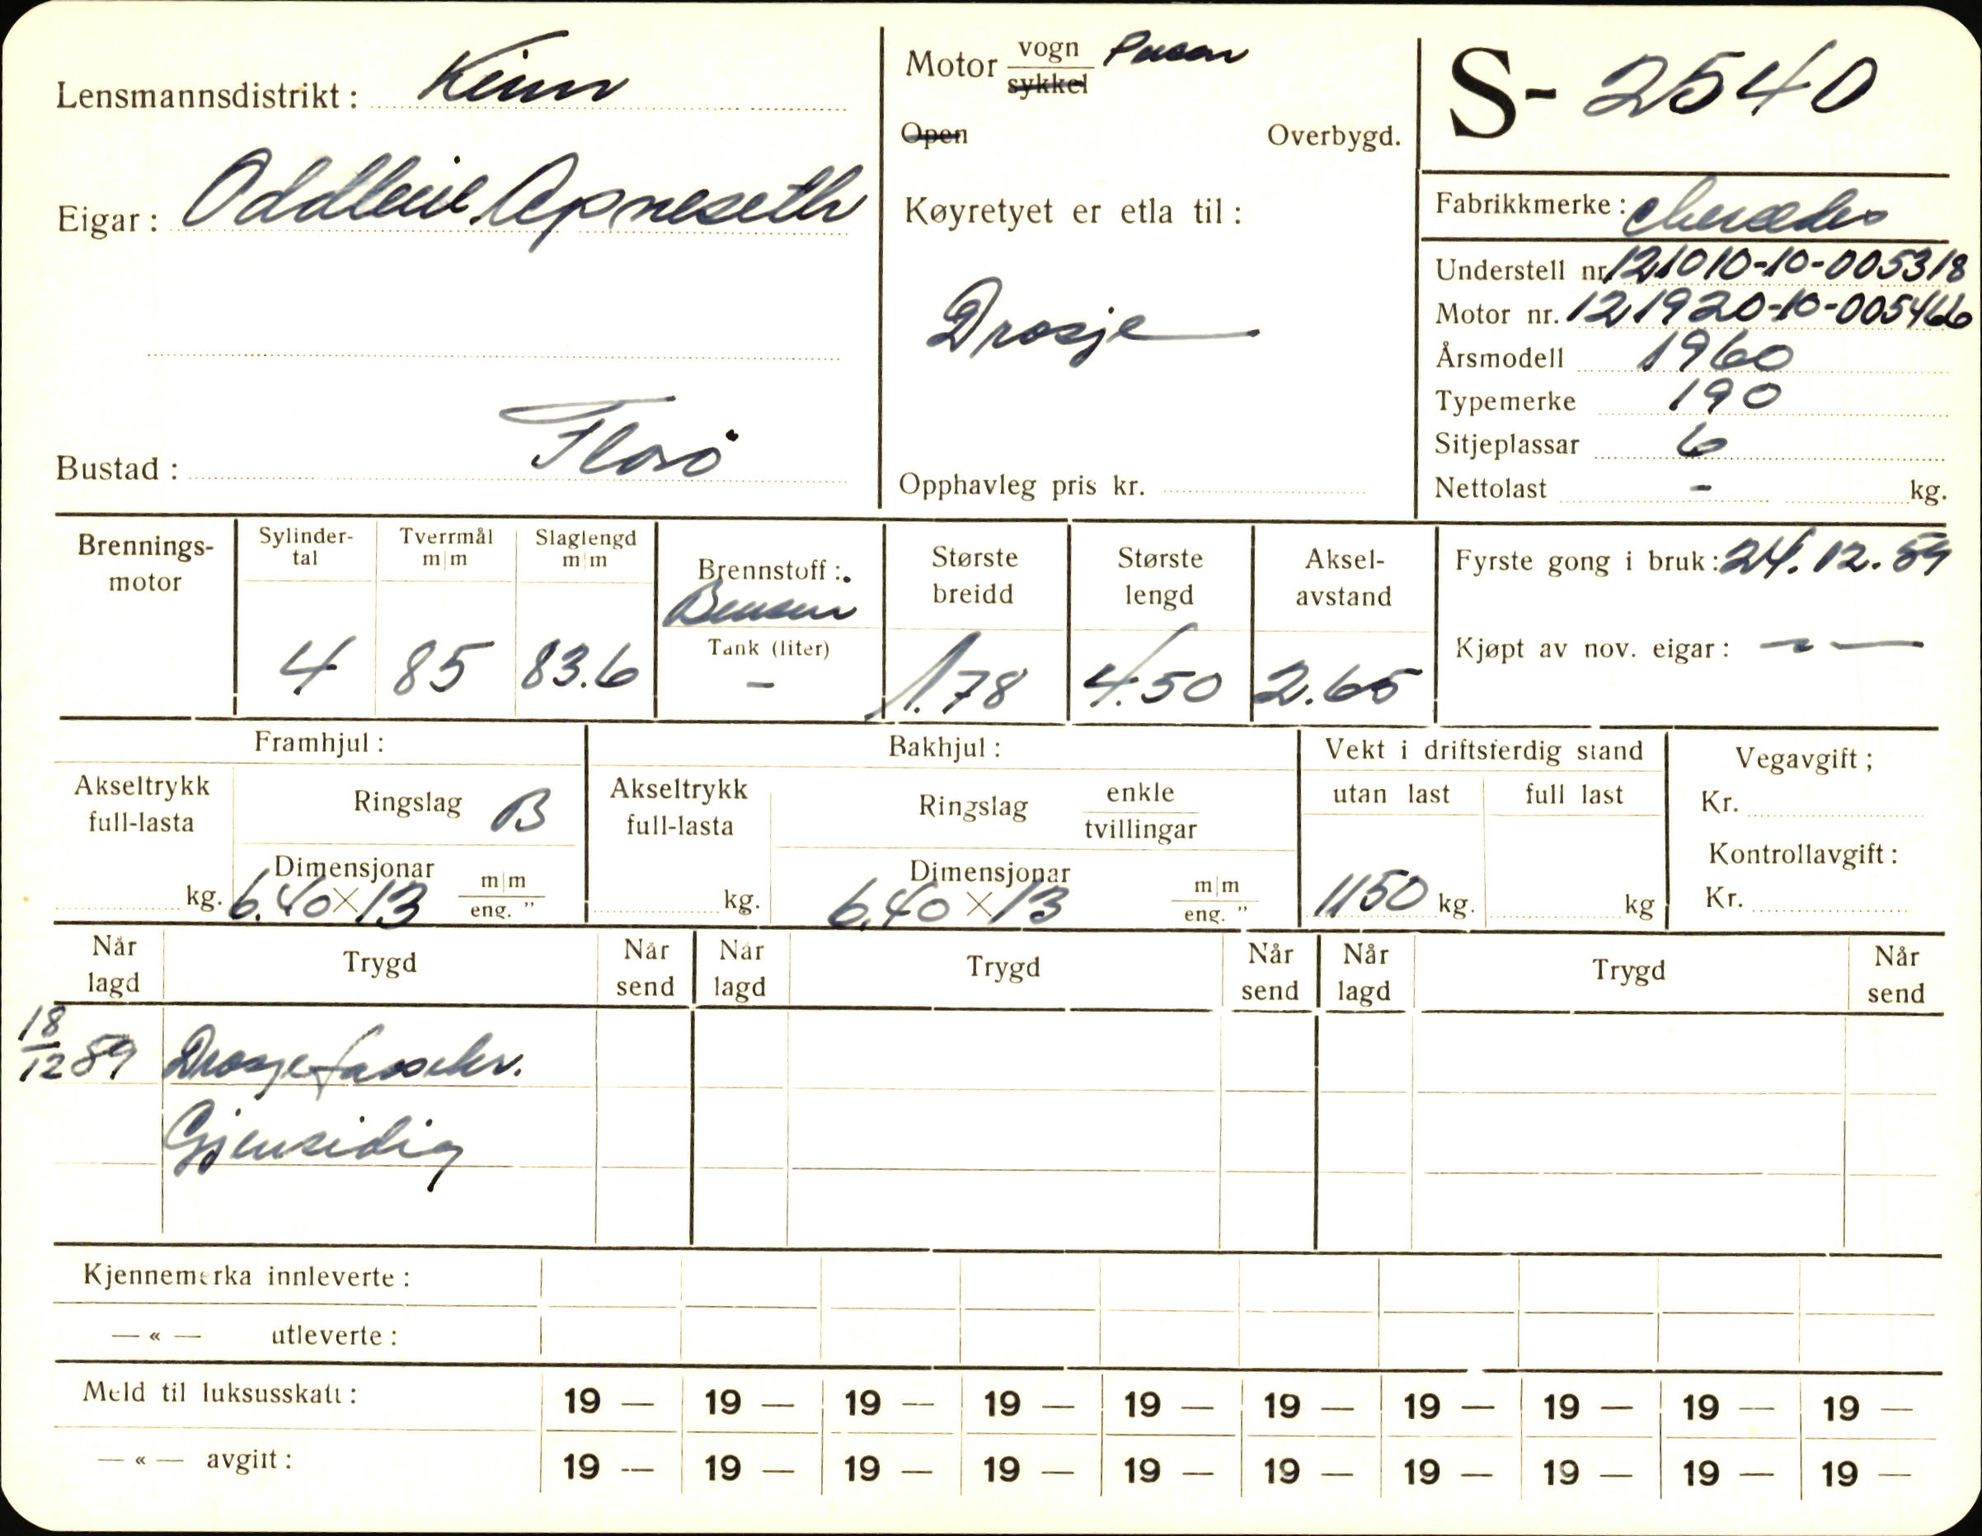 Lensmannsdistrikt: Kinn
Eigar: Oddleiv Apneseth
Bustad: Florö
Motor vogn Person
sykkel
Open Overbygd.
Køyretyet er etla til:
Drosje
Opphavleg pris kr.
S- 2540
Fabrikkmerke: Mercedes
Understell nr. 121010-10-005318
Motor nr. 121920-10-005466
Årsmodell 1960
Typemerke 190
Sitjeplassar 6
Nettolast - kg.
Brennings-
motor
Sylinder-
tal
4
Tverrmål
m|m
85
Slaglengd
m|m
83.6
Brennstoff:
Bensin
Tank (liter)
-
Største
breidd
1.78
Største
lengd
4.50
Aksel-
avstand
2.65
Fyrste gong i bruk: 24.12.59
Kjøpt av nov. eigar: — " —
Framhjul:
Akseltrykk
full-lasta
kg.
Ringslag B
Dimensjonar m|m
6.40 × 13 eng. "
Bakhjul:
Akseltrykk
full-lasta
kg.
Ringslag enkle
tvillingar
Dimensjonar m|m
6.40 × 13 eng. "
Vekt i driftsferdig stand
utan last full last
1150 kg. kg
Vegavgift;
Kr.
Kontrollavgift:
Kr.
Når
lagd
Trygd
Når
send
Når
lagd
Trygd
Når
send
Når
lagd
Trygd
Når
send
18/12 59 Drosjefassekr.
Gjensidig
Kjennemerka innleverte:
— « — utleverte:
Meld til luksusskatt: 19 — 19 — 19 — 19 — 19 — 19 — 19 — 19 — 19 — 19 —
— « — avgift: 19 — 19 — 19 — 19 — 19 — 19 — 19 — 19 — 19 — 19 —